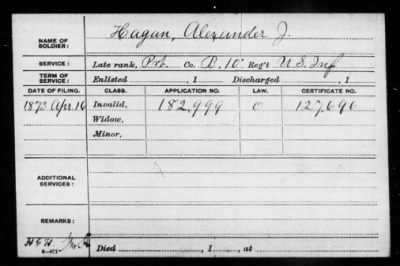 NAME OF SOLDIER: Hagan, Alexander J.
SERVICE: Late rank, Pvt. Co. B, 10" Reg't U.S. Inf
TERM OF SERVICE: Enlisted , 1 Discharged , 1
DATE OF FILING. CLASS. APPLICATION NO. LAW. CERTIFICATE NO.
1873 Apr. 16 Invalid, 182,999 O 127,690
Widow,
Minor,
ADDITIONAL SERVICES:
REMARKS:
Died , 1 , at